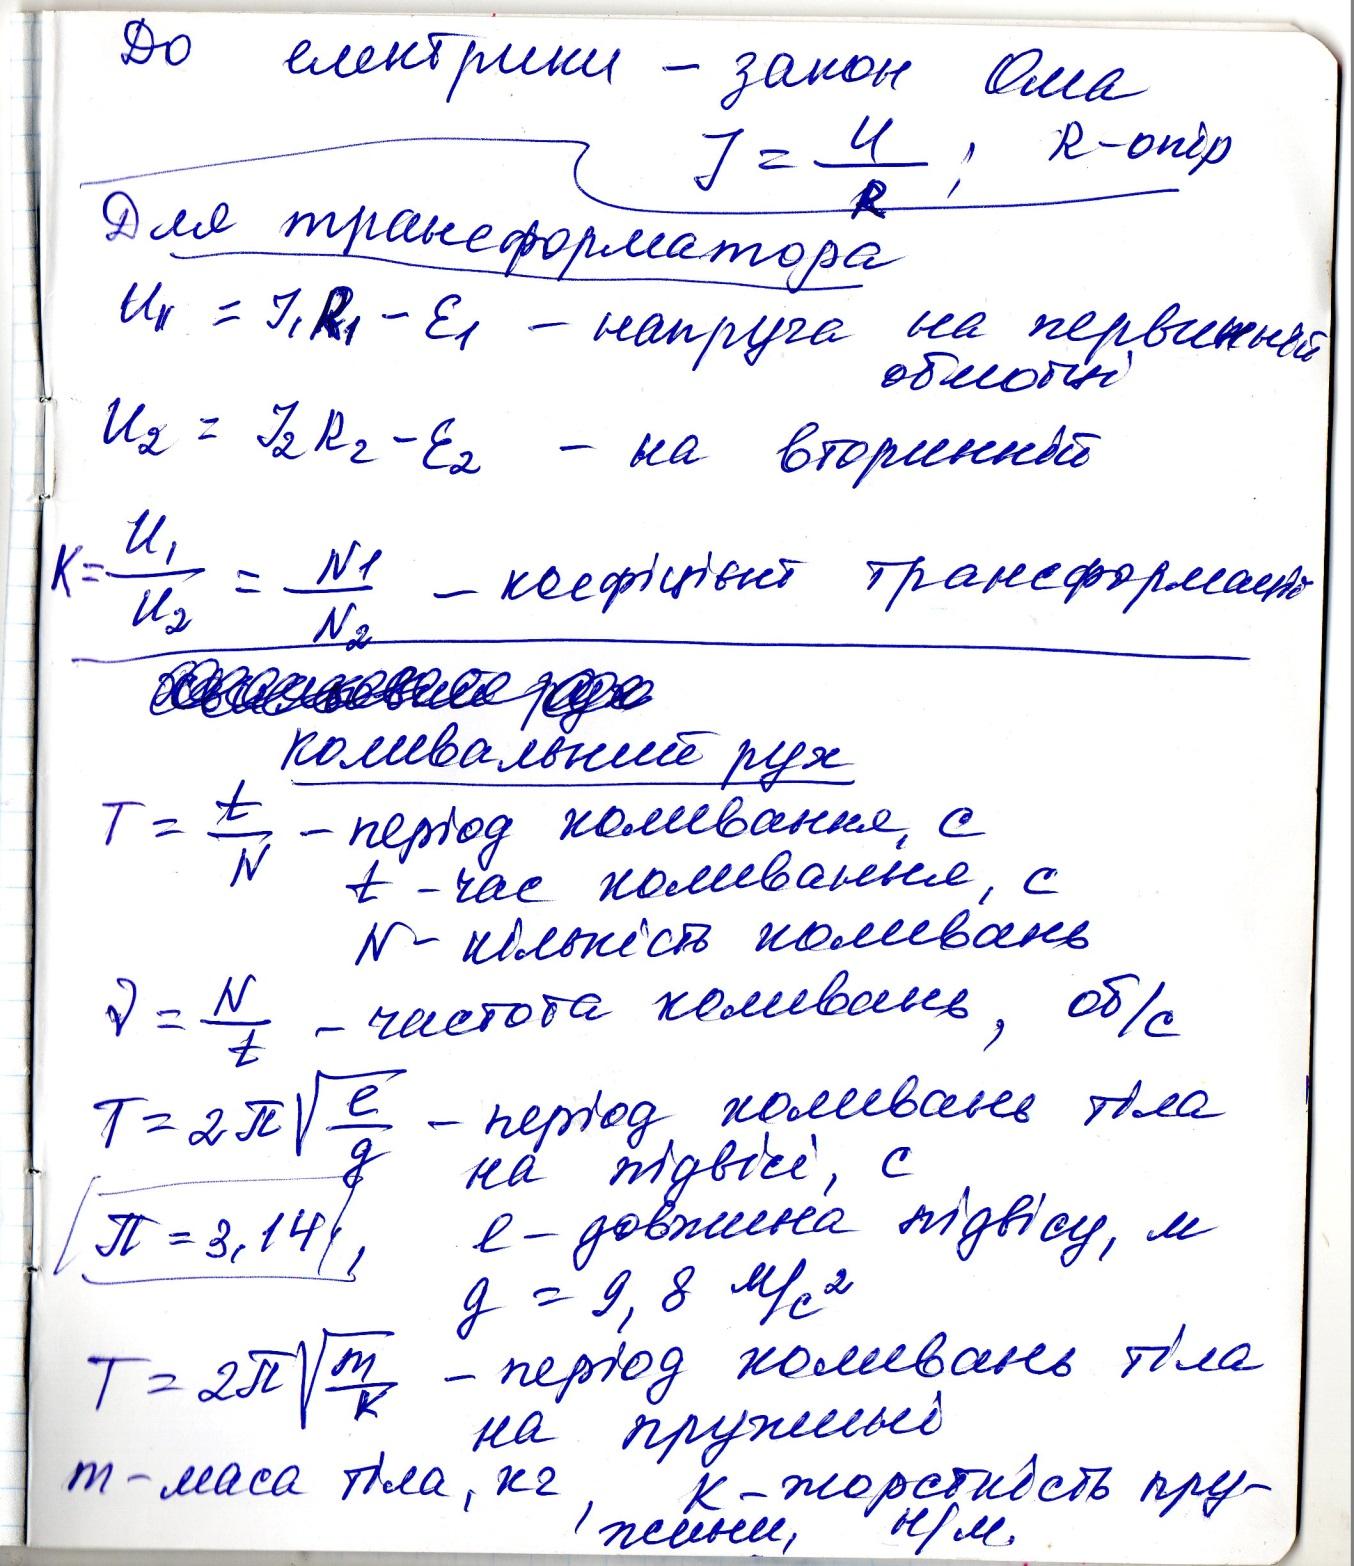 До електрики – закон Ома
J = U/R ; R – опір
Для трансформатора
U₁ = J₁R₁ – Ɛ₁ – напруга на первинній
обмотці
U₂ = J₂R₂ – Ɛ₂ – на вторинній
K = U₁/U₂ = N1/N₂ – коефіцієнт трансформації
коливальний рух
T = t/N – період коливання, с
t – час коливання, с
N – кількість коливань
ν = N/t – частота коливань, об/с
T = 2π√(l/g) – період коливань тіла
на підвісі, с
π = 3,14, l – довжина підвісу, м
g = 9,8 м/с²
T = 2π√(m/k) – період коливань тіла
на пружині
m – маса тіла, кг, k – жорсткість пру-
жини, н/м.